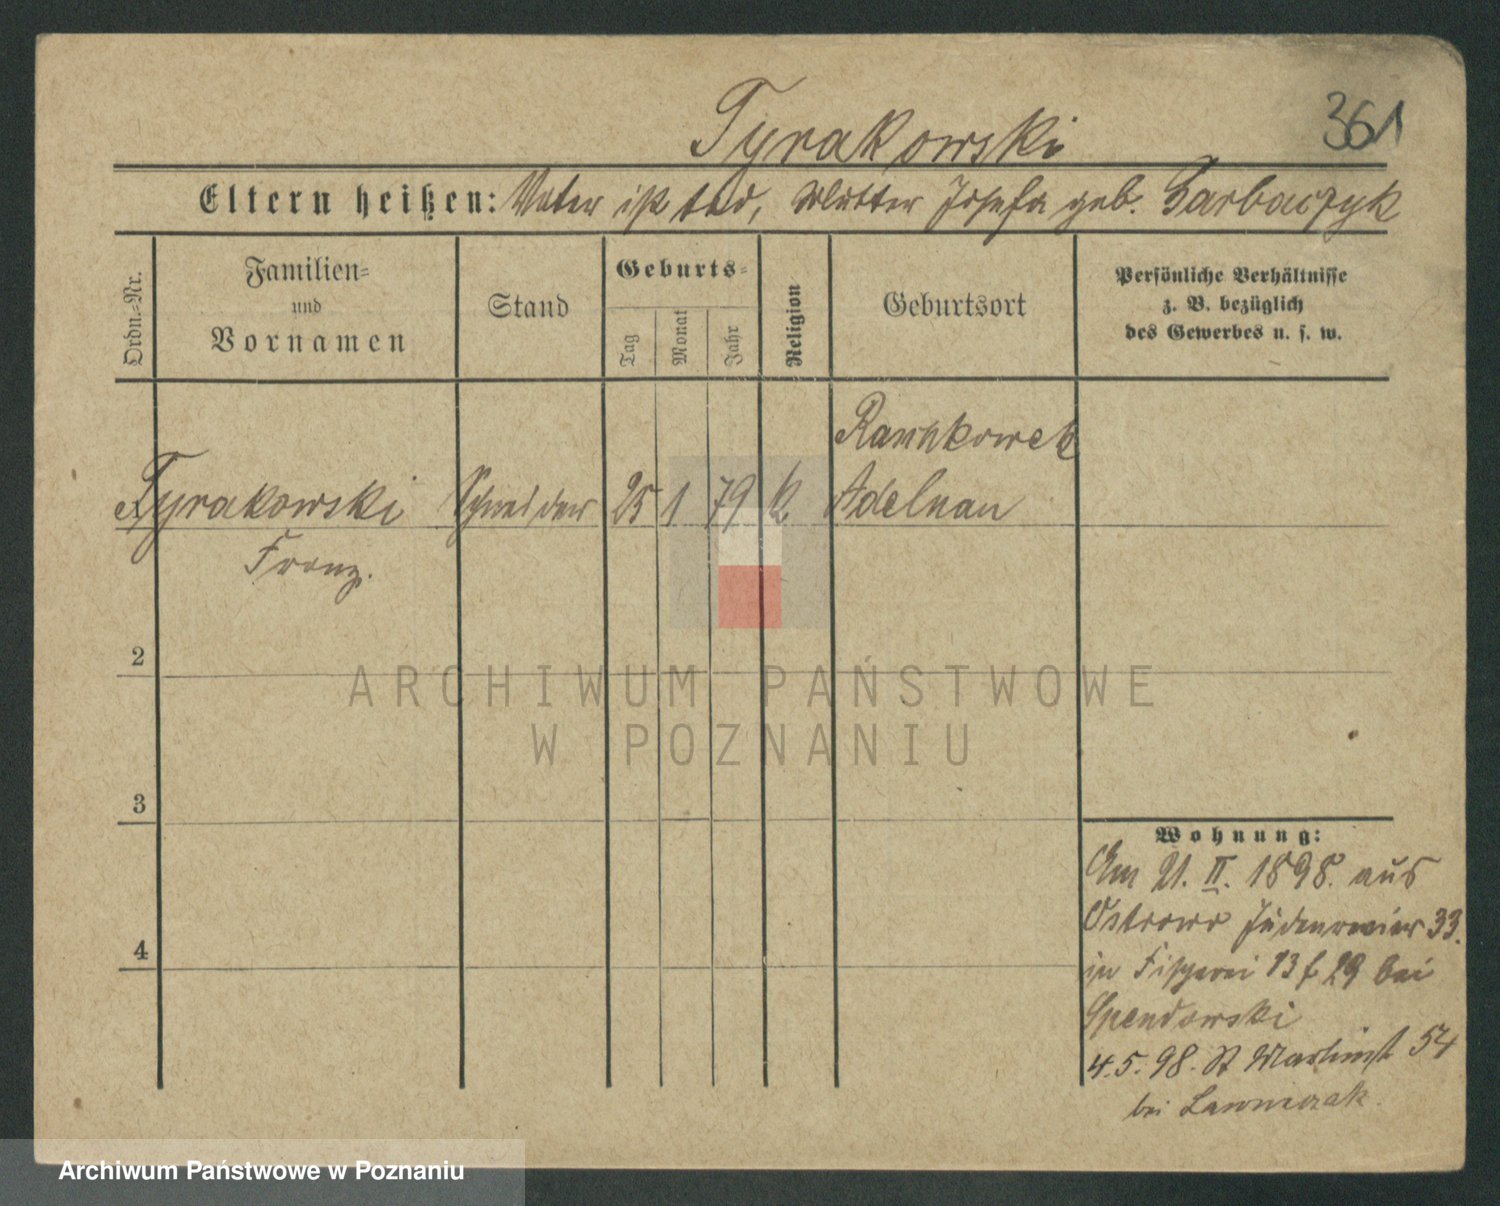 361
Tyrakowski
Eltern heißen: Vater ist tod, Mutter Josefa geb. Garbaczyk
Ordn.-Nr.
Familien-
und
Vornamen
Stand
Geburts-
Tag
Monat
Jahr
Religion
Geburtsort
Persönliche Verhältnisse
z. B. bezüglich
des Gewerbes u. s. w.
Tyrakowski
Franz.
Schneider
25
1
79
k
Adelnau
2
3
4
Wohnung:
Am 21. II. 1898. aus
Ostrowo 33.
in Fischerei 13 f 29 bei
Spendowski
4.5.98. St Martinst 54
bei Lawniczak.
ARCHIWUM PAŃSTWOWE
W POZNANIU
Archiwum Państwowe w Poznaniu